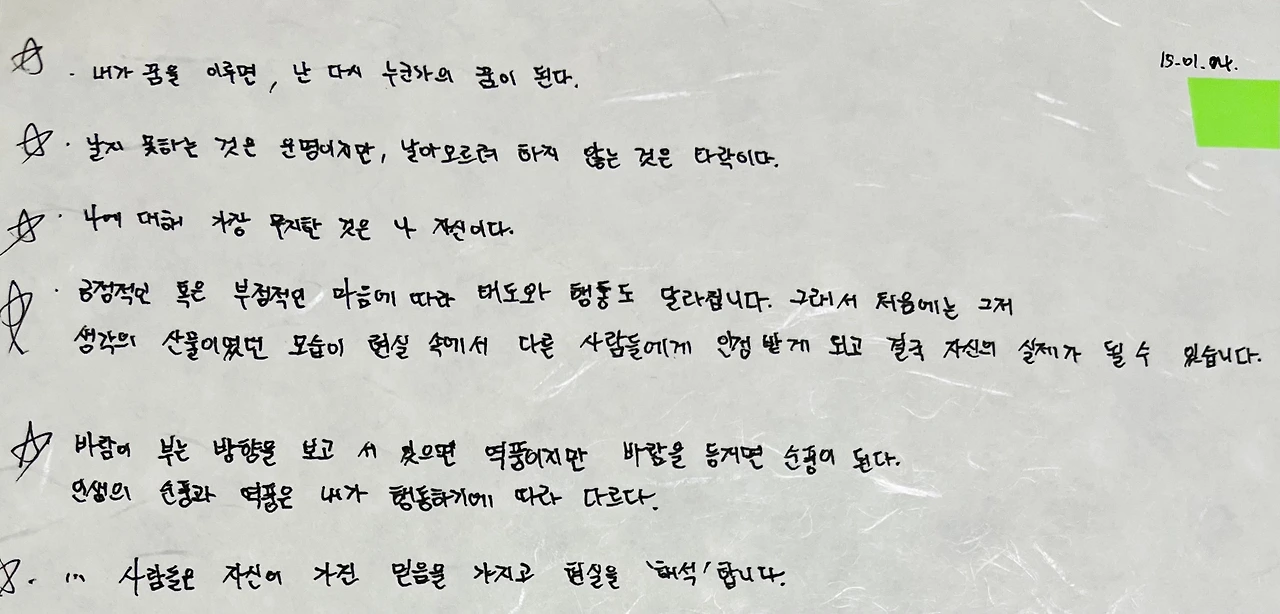 15.01.04.
☆ · 내가 꿈을 이루면, 난 다시 누군가의 꿈이 된다.
☆ · 날지 못하는 것은 운명이지만, 날아오르려 하지 않는 것은 타락이다.
☆ · 나에 대해 가장 무지한 것은 나 자신이다.
☆ · 긍정적인 혹은 부정적인 마음에 따라 태도와 행동도 달라집니다. 그래서 처음에는 그저
생각의 산물이었던 모습이 현실 속에서 다른 사람들에게 인정 받게 되고 결국 자신의 실제가 될 수 있습니다.
☆ 바람이 부는 방향을 보고 서 있으면 역풍이지만 바람을 등지면 순풍이 된다.
인생의 순풍과 역풍은 내가 행동하기에 따라 다르다.
☆ · ... 사람들은 자신이 가진 믿음을 가지고 현실을 '해석'합니다.